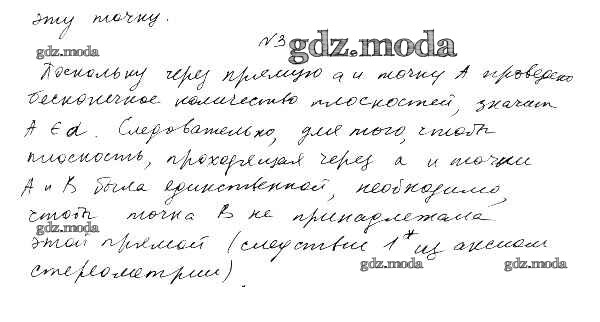 эту точку.
gdz.moda
№3 gdz.moda
Поскольку через прямую а и точку А проведено
бесконечное количество плоскостей, значит
А ∈ d. Следовательно, для того, чтобы
плоскость, проходящая через а и точки
А и В была единственной, необходимо,
чтобы точка В не принадлежала
gdz.moda
этой прямой (следствие 1* из аксиом
gdz.moda gdz.moda
стереометрии).